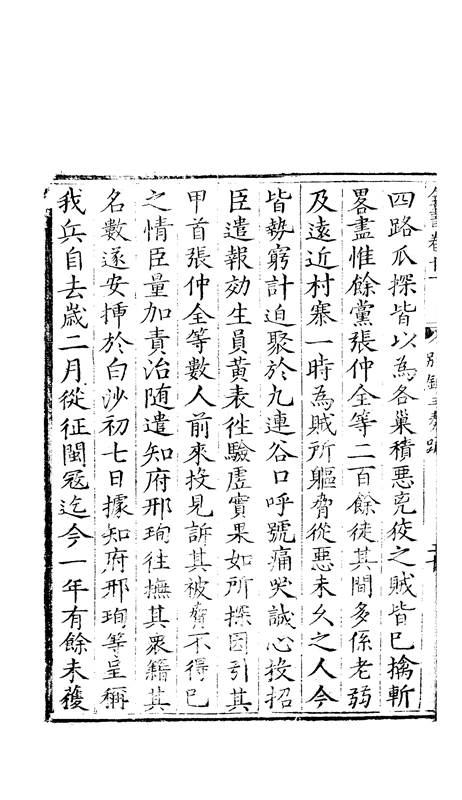 全書卷十一 別錄三奏疏
四路瓜探皆以為各巢積惡兇狡之賊皆已擒斬
畧盡惟餘黨張仲全等二百餘徒其間多係老弱
及遠近村寨一時為賊所軀脅從惡未久之人今
皆勢窮計迫聚於九連谷口呼號痛哭誠心投招
臣遣報効生員黃表徃驗虛實果如所探因引其
甲首張仲全等數人前來投見訴其被脅不得已
之情臣量加責治随遣知府邢珣徃撫其衆籍其
名數遂安揷於白沙初七日據知府邢珣等呈稱
我兵自去歲二月從征閩冦迄今一年有餘未穫